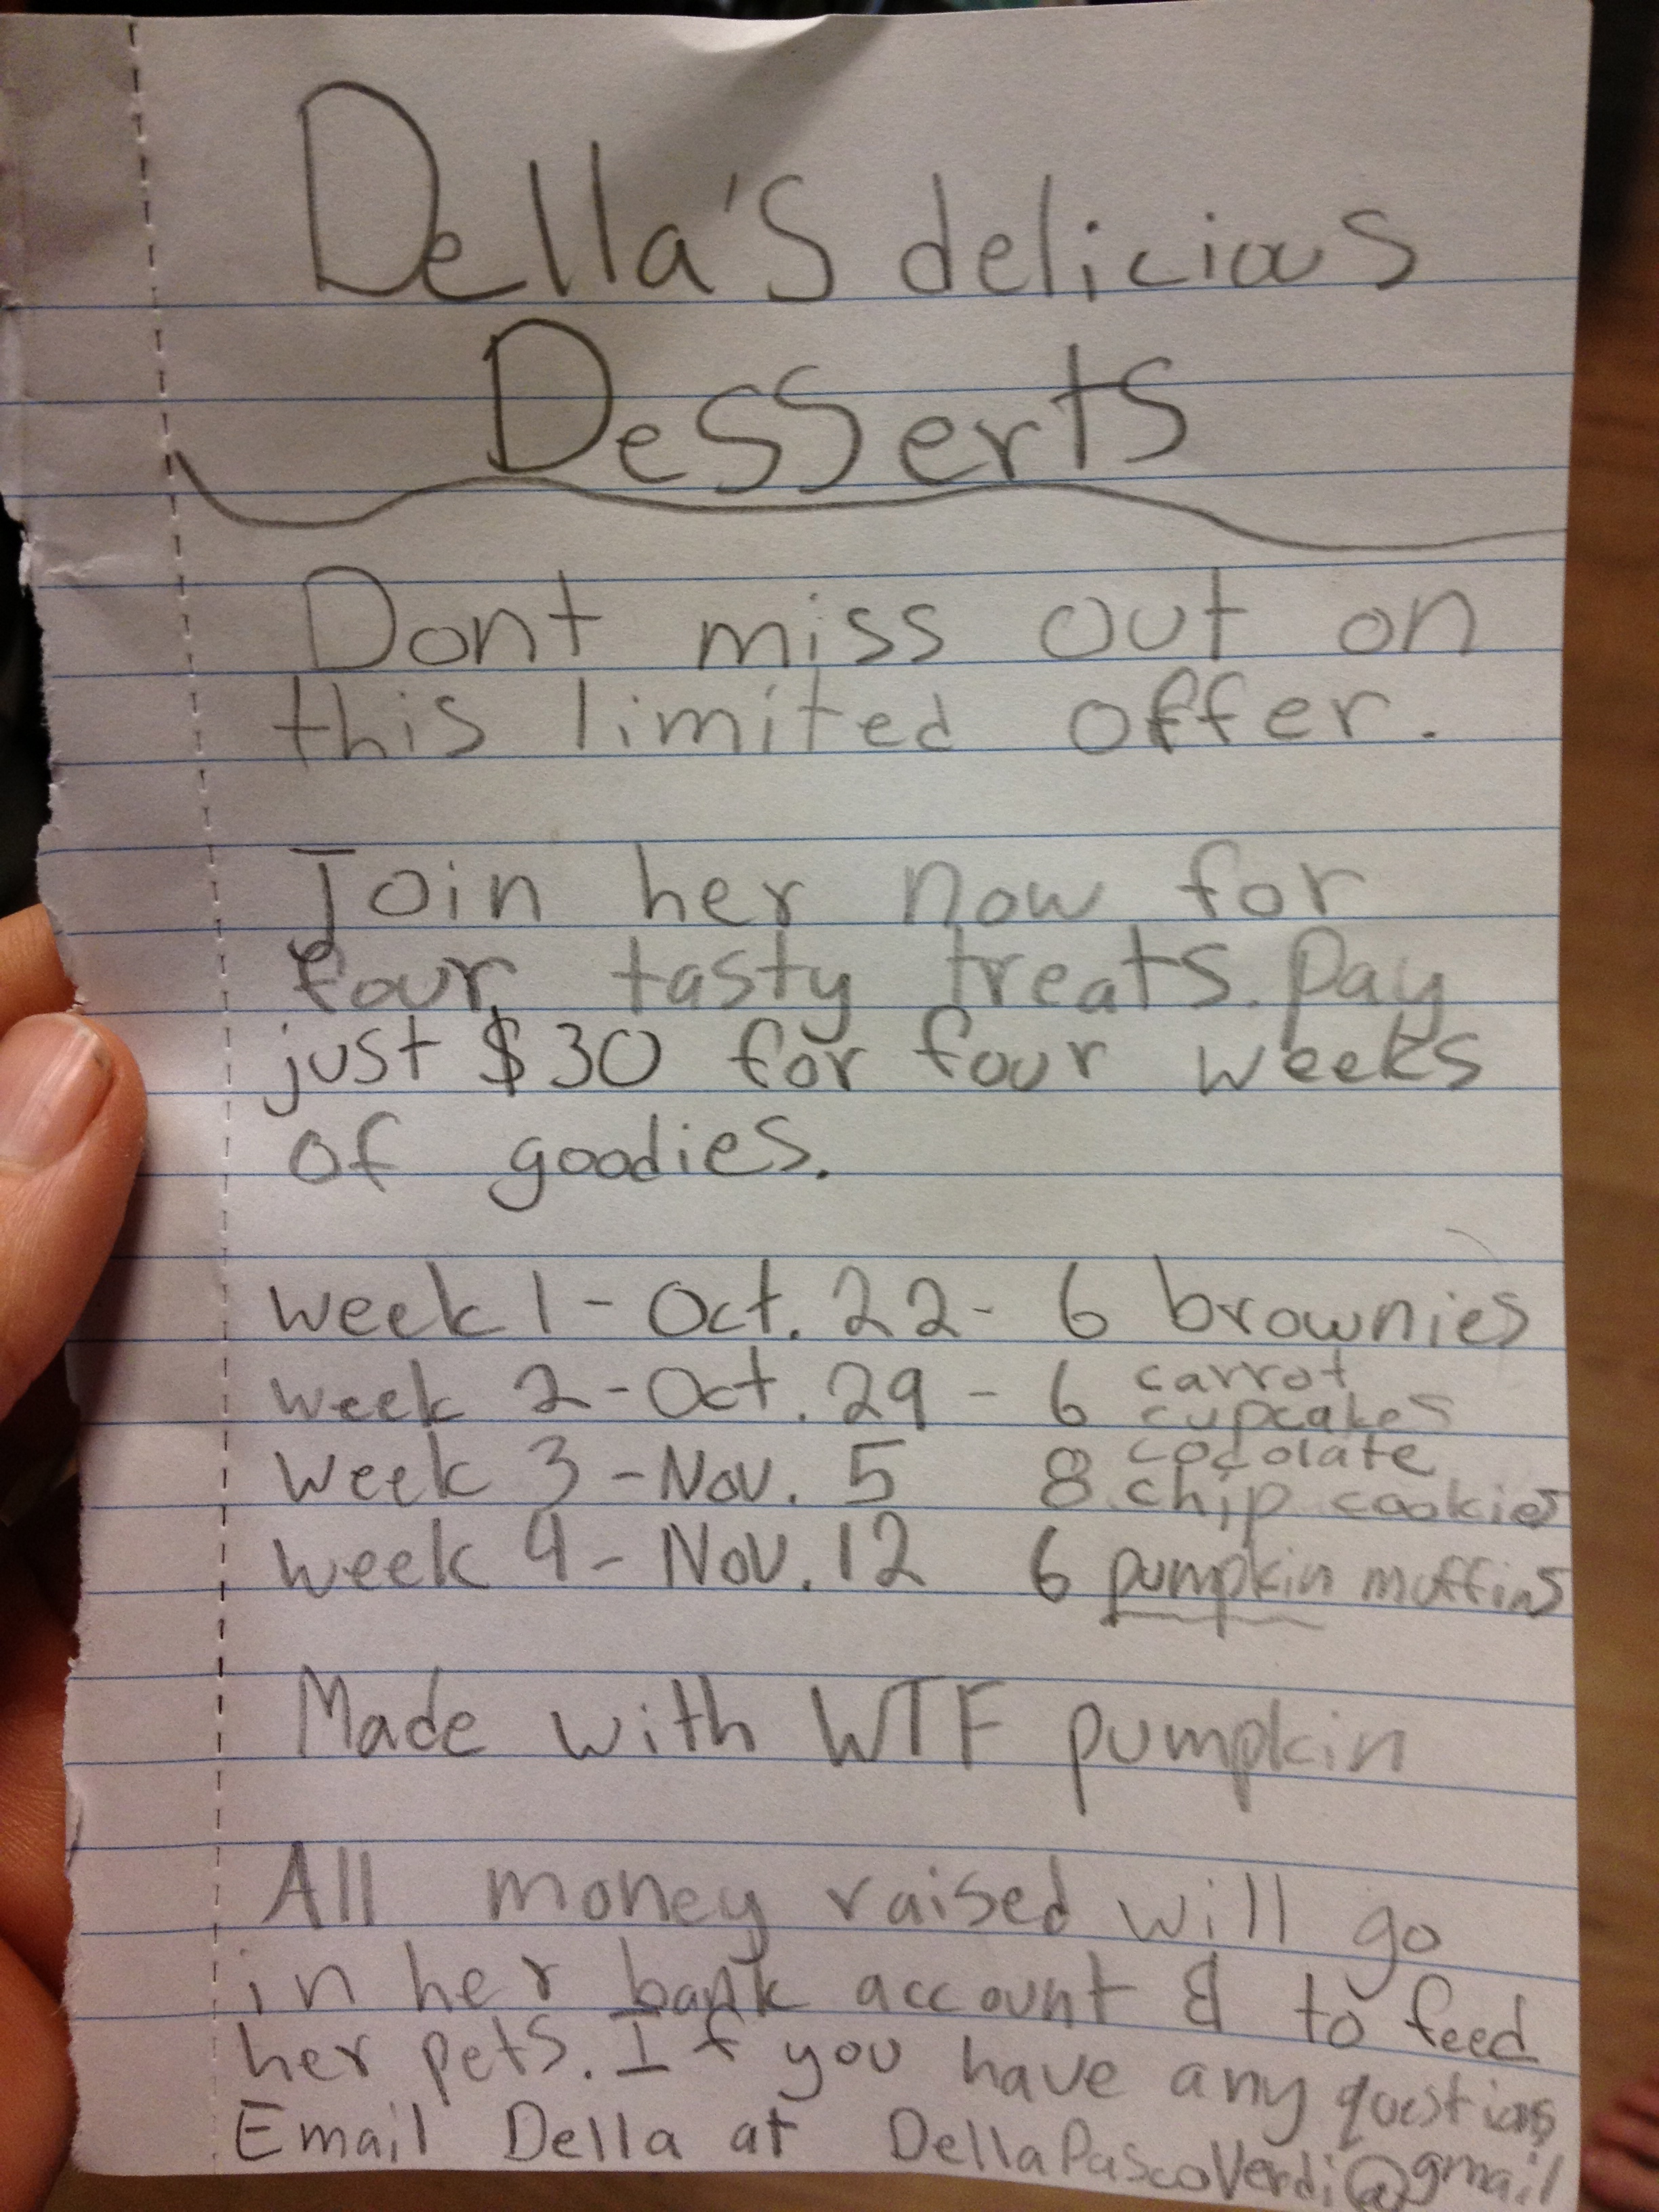 Della's delicious
Desserts
Dont miss out on
this limited offer.
Join her now for
four tasty treats. Pay
just $30 for four weeks
of goodies.
week 1 - Oct. 22 - 6 brownies
week 2 - Oct. 29 - 6 carrot
cupcakes
Week 3 - Nov. 5 8 cocolate
chip cookies
week 4 - Nov. 12 6 pumpkin muffins
Made with WTF pumpkin
All money raised will go
in her bank account & to feed
her pets. If you have any questions
Email Della at DellaPascoVerdi@gmail